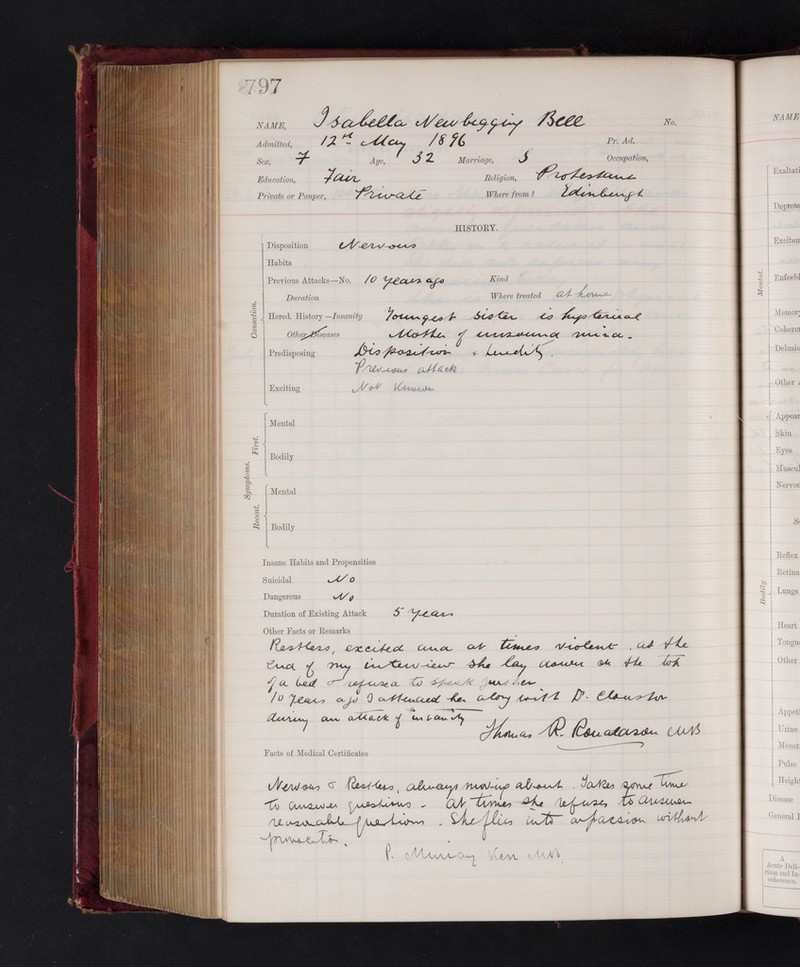 797
NAME, Isabella Newbegging Bell No.
Admitted, 12th May 1896 Pr. Ad.
Sex, F Age, 32 Marriage, S Occupation,
Education, Fair Religion, Protestant
Private or Pauper, Private Where from? Edinburgh
HISTORY.
Causation.
Disposition Nervous
Habits
Previous Attacks—No. 10 years ago Kind
Duration Where treated at home
Hered. History—Insanity Youngest Sister is hysterical
Other Diseases Mother of unsound mind.
Predisposing Disposition + heredity.
Previous attack
Exciting Not Known
Symptoms.
First.
Mental
Bodily
Recent.
Mental
Bodily
Insane Habits and Propensities
Suicidal No
Dangerous No
Duration of Existing Attack 5 years
Other Facts or Remarks
Restless, excited and at times violent. at the
end of my interview she lay down on the top
of a bed & refused to speak further
10 years ago I attended her along with Dr. Clouston
during an attack of insanity
Thomas R Ronaldson MB
Facts of Medical Certificates
Nervous & Restless, always moving about. Takes some time
to answer questions - at times she refuses to answer
reasonable questions. She flies into a passion without
provocation.
P. Murray Kerr MB.
NAME
Mental.
Exaltati
Depress
Excitem
Enfeebl
Memory
Coheren
Delusio
Other
Appear
Skin
Eyes
Muscul
Nervou
Bodily.
Reflex
Retina
Lungs
Heart
Tongue
Other
Appeti
Urine
Menst
Pulse
Height
Disease
General
A
Acute Deli-
rium and In-
coherence.